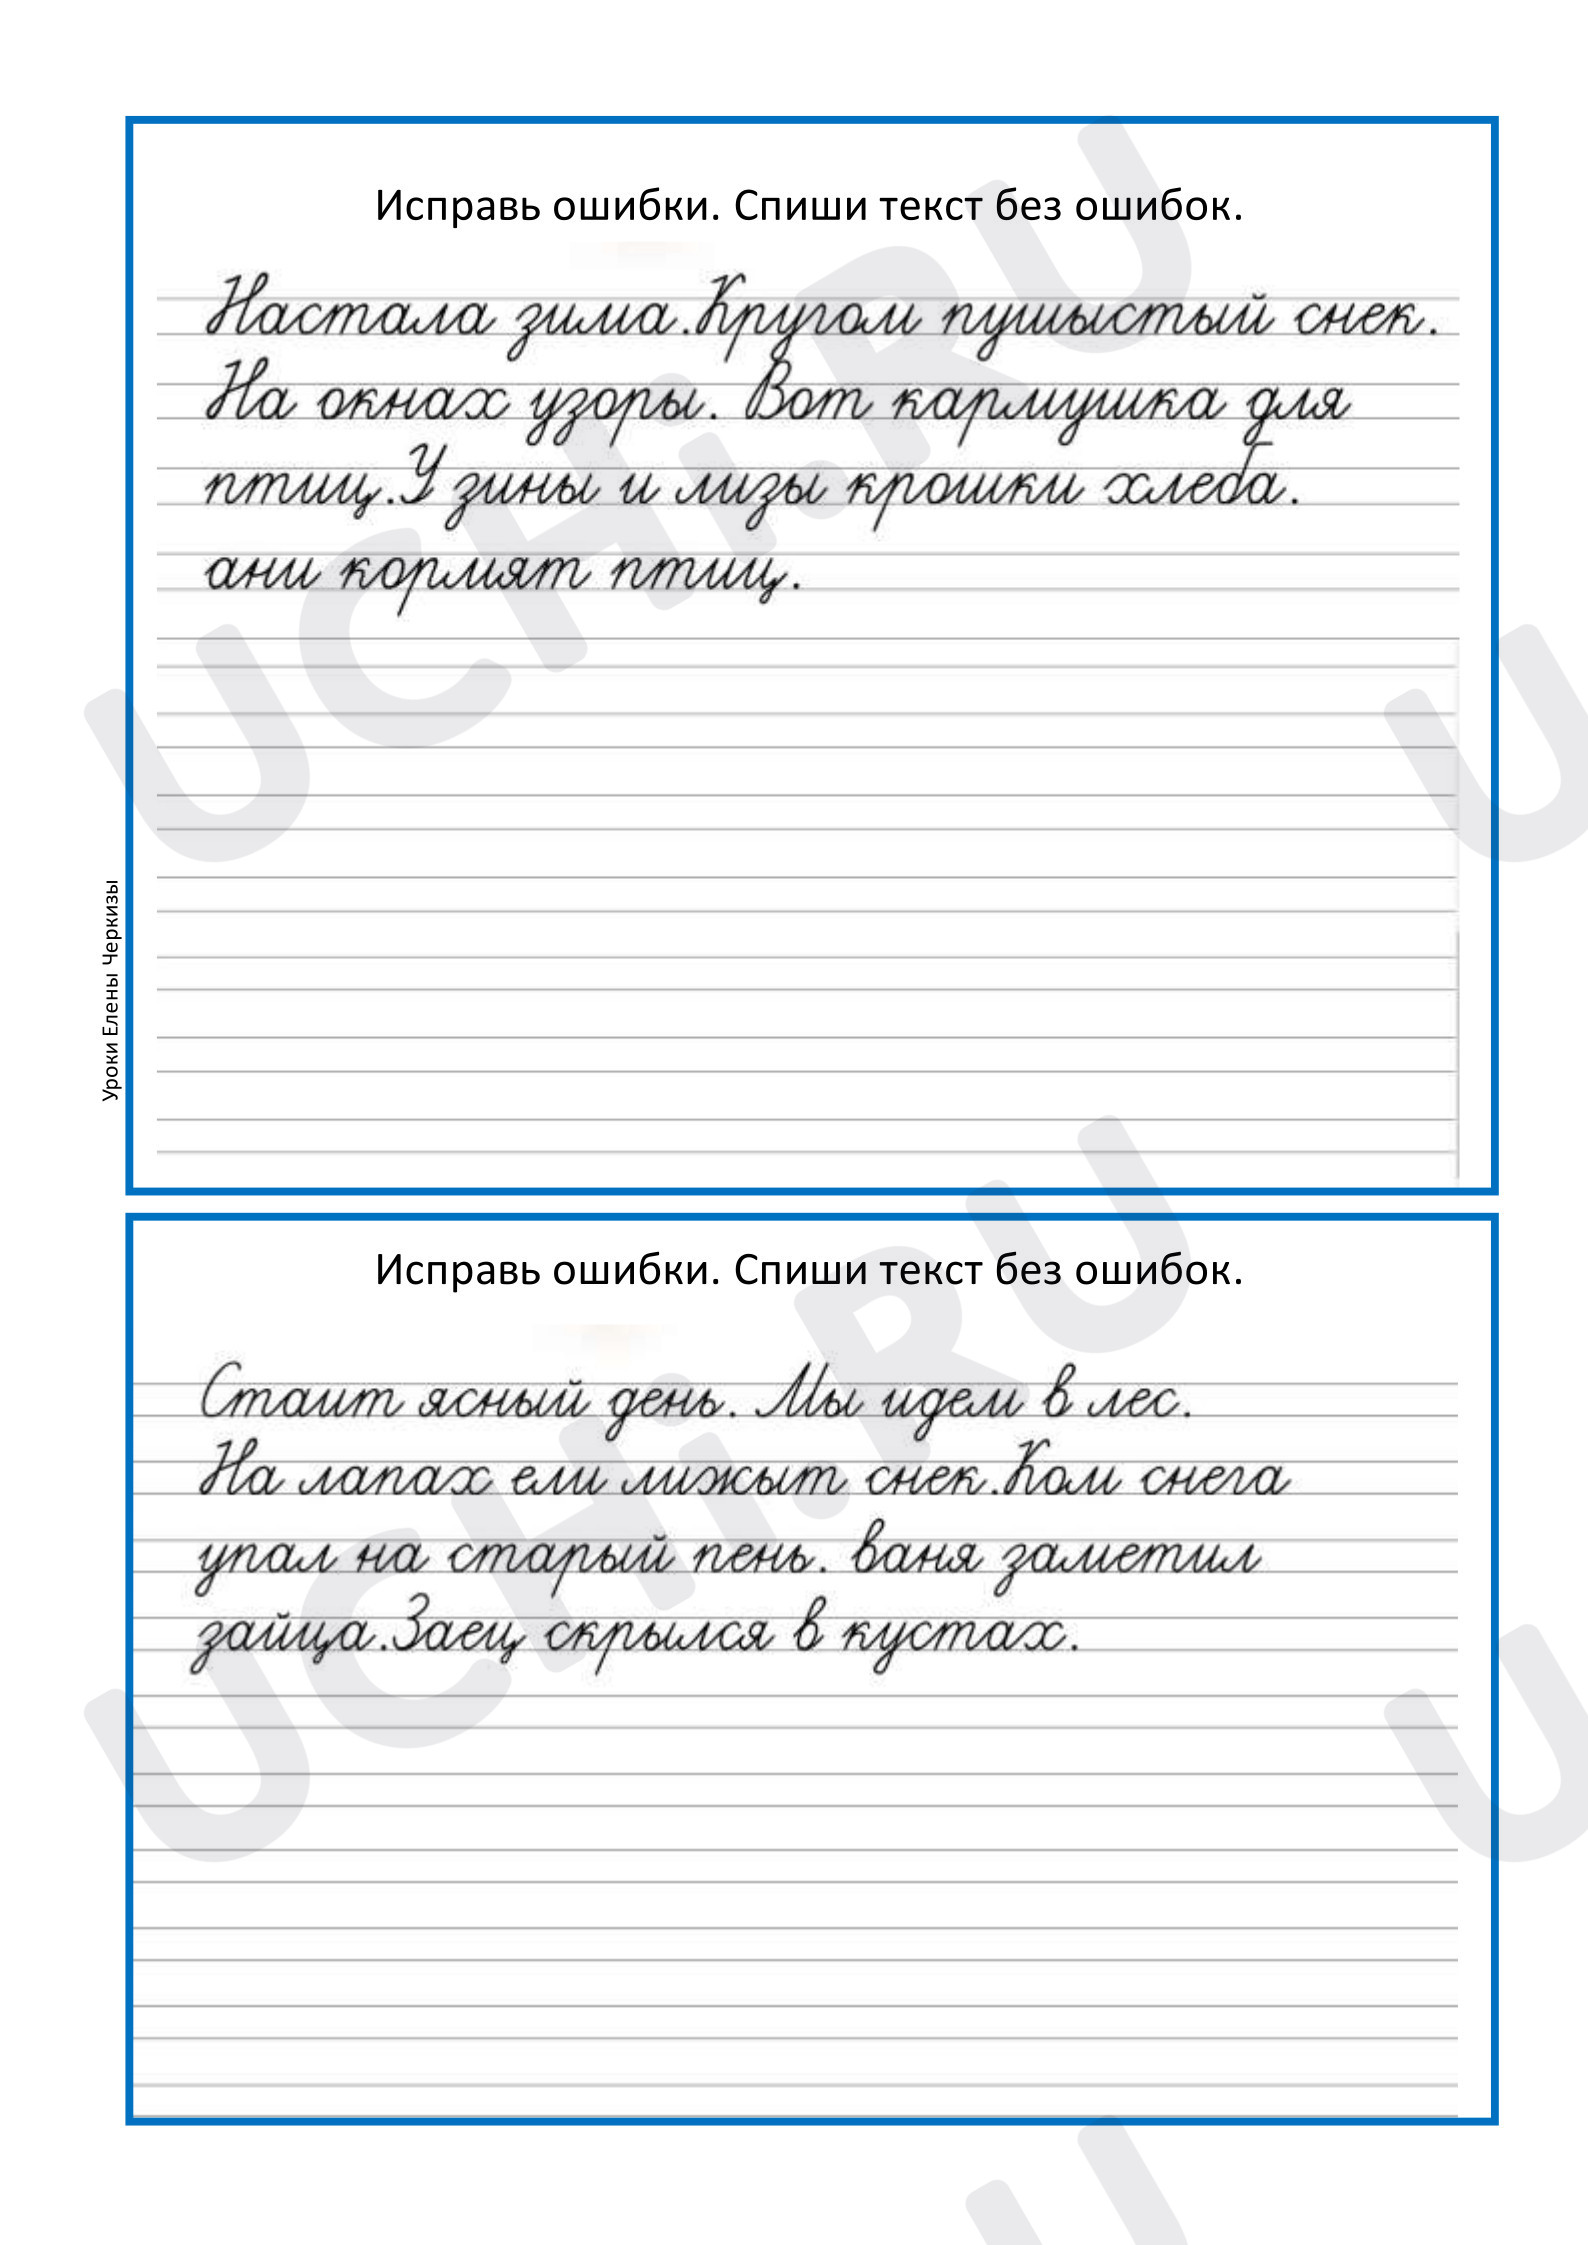 Исправь ошибки. Спиши текст без ошибок.
Настала зима.Кругом пушыстый снек.
На окнах узоры. Вот кармушка для
птиц.У зины и лизы крошки хлеба.
ани кормят птиц.
Уроки Елены Черкизы
Исправь ошибки. Спиши текст без ошибок.
Стаит ясный день. Мы идем в лес.
На лапах ели лижыт снек.Ком снега
упал на старый пень. ваня заметил
зайца.Заец скрылся в кустах.
UCHi.RU
UCHi.RU